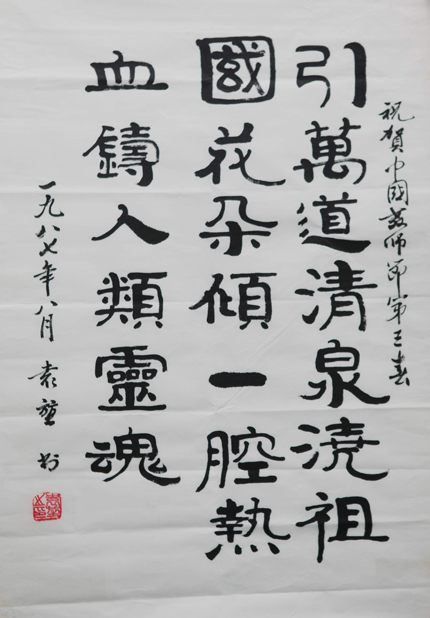 祝賀中國教师節第三春
引萬道清泉澆祖
國花朵傾一腔熱
血鑄人類靈魂
一九八七年八月 袁